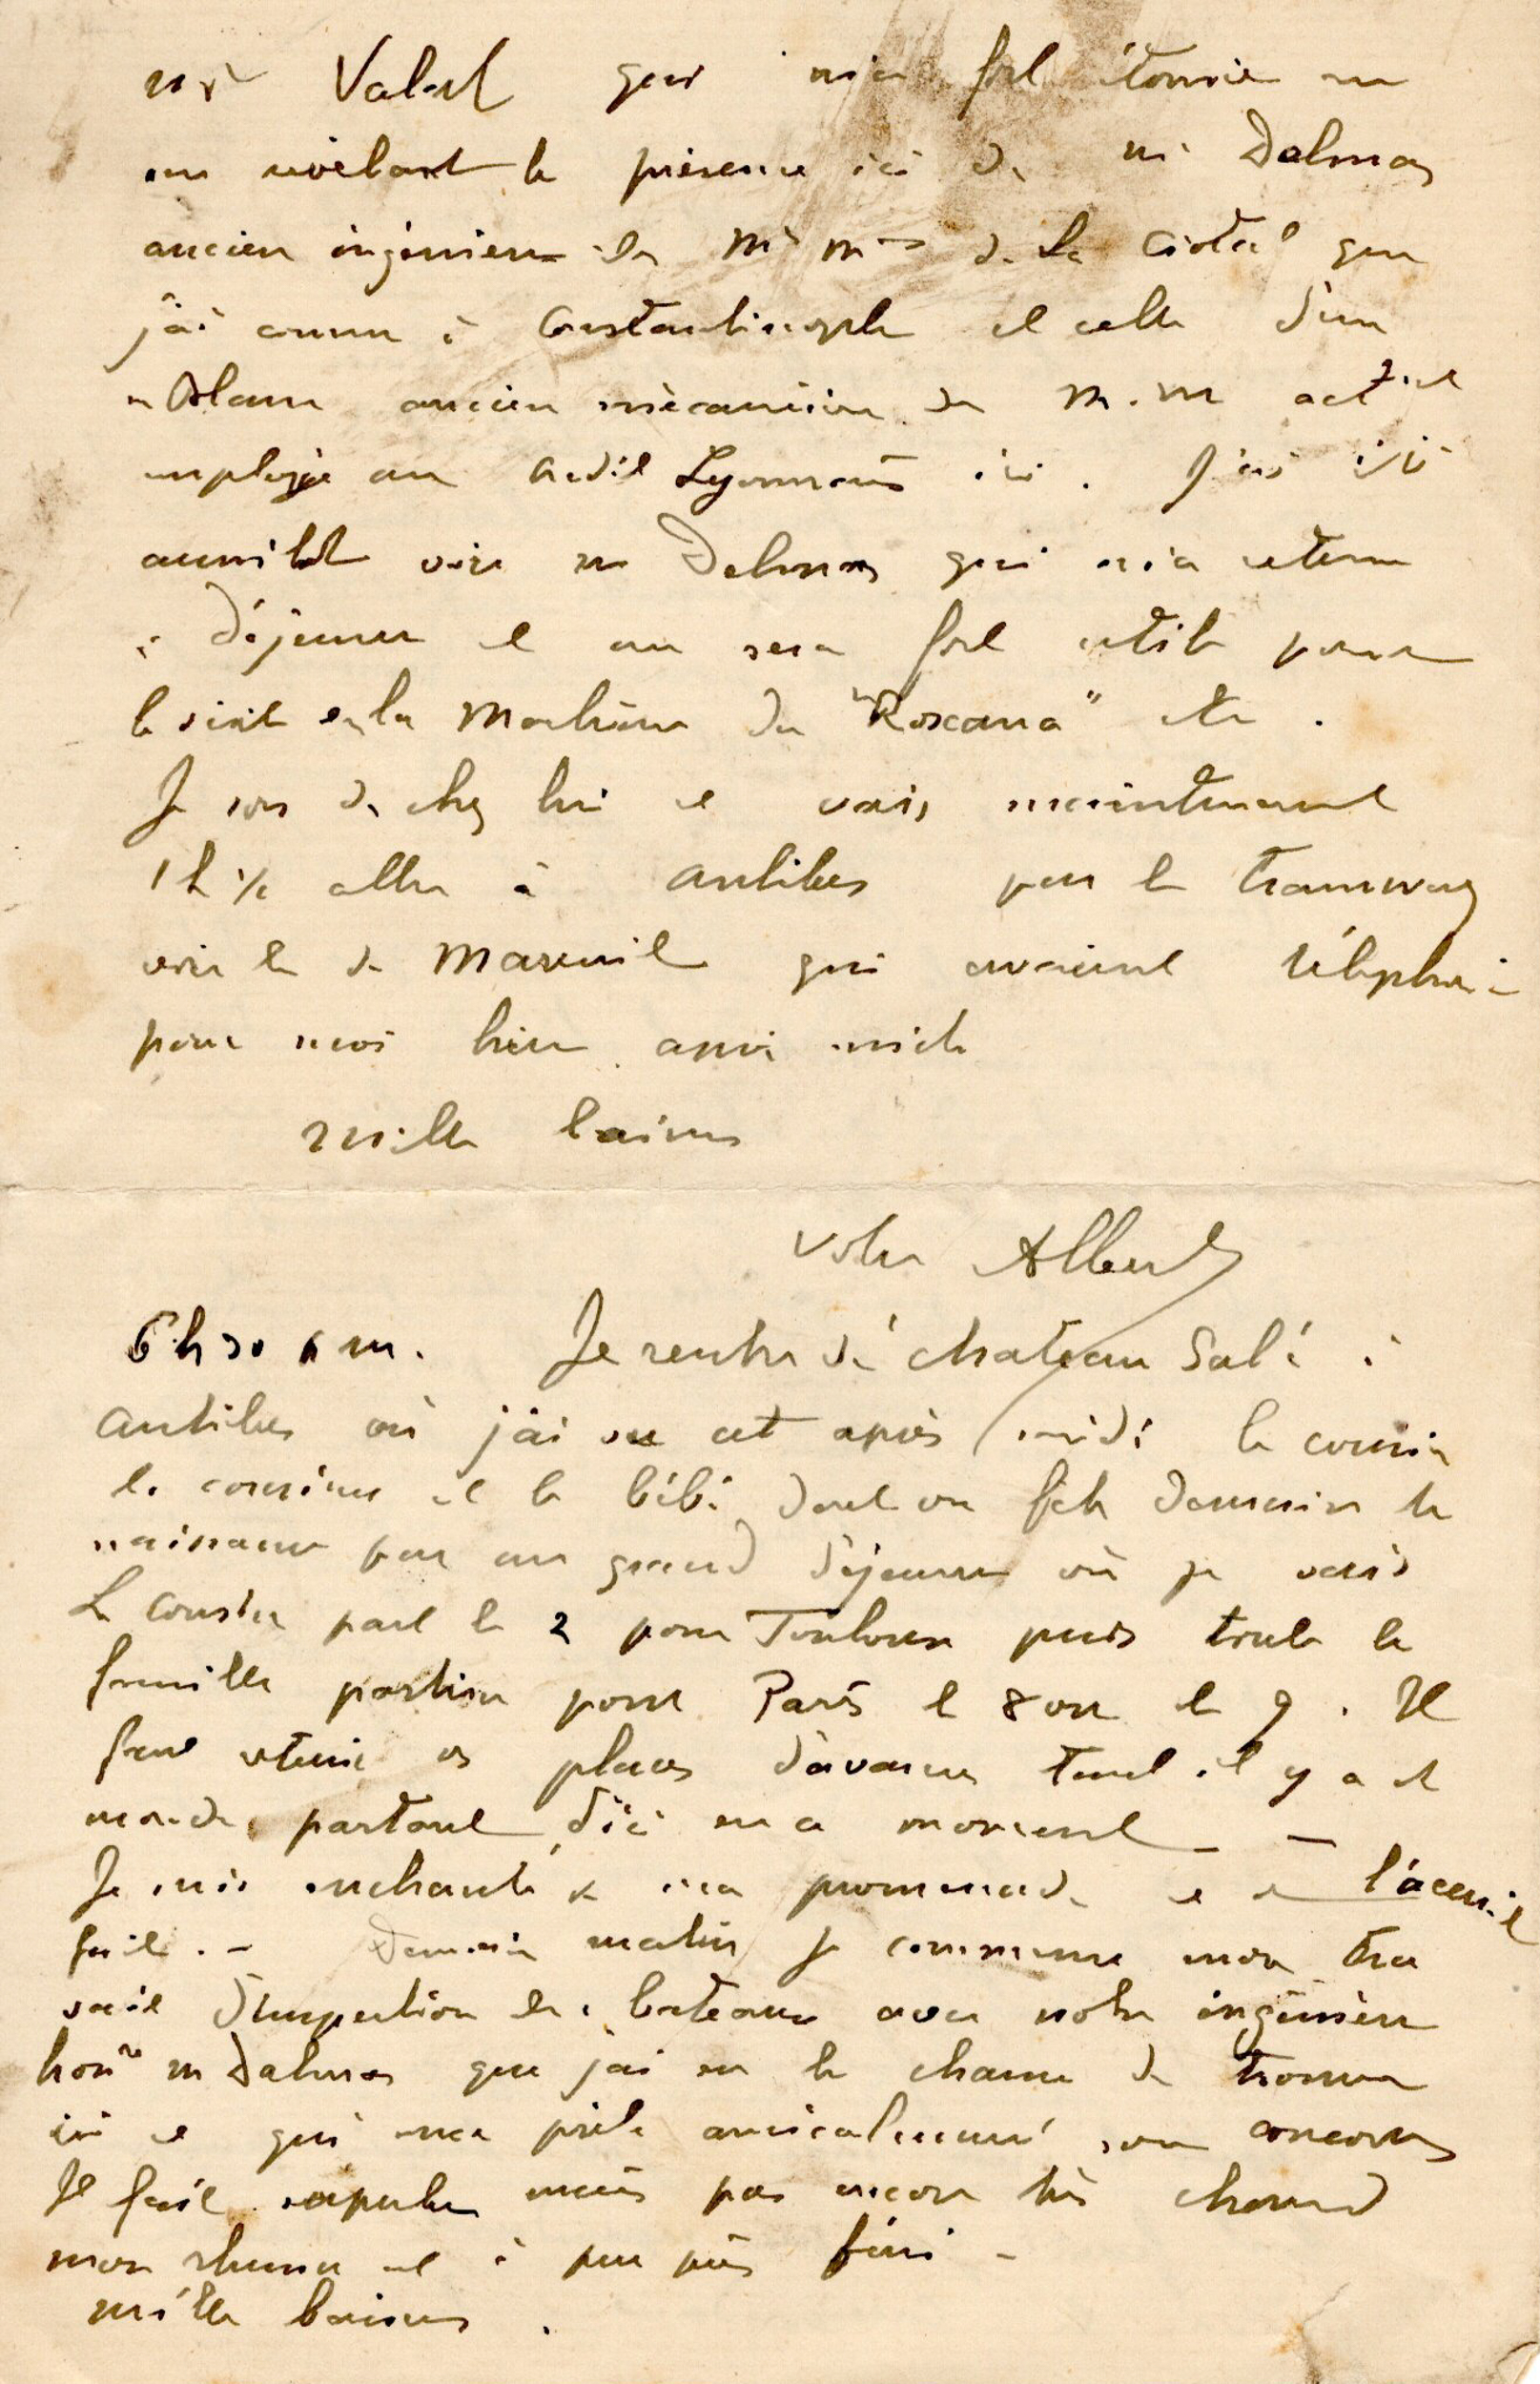 Mr Valest qui m'a fort étonné en
me révélant la présence ici de M. Dalmas
ancien ingénieur des Mies Mmes de la Ciotat que
j'ai connu à Constantinople et celle d'un
ancien mécanicien des M. M
employé au Crédit Lyonnais ici. J'ai été
aussitôt voir M Dalmas qui m'a retenu
à déjeuner et me sera fort utile pour
la visite de la machine du "Roxana" etc.
Je sors de chez lui et vais maintenant
1h ½ aller à Antibes par le tramway
voir les de Mareuil qui avaient téléphoné
pour moi hier après midi
mille baisers
Votre Albert
6h30 s m. Je rentre du chateau Salé à
Antibes où j'ai vu cet après midi le cousin
la cousine et le bébé dont on fête demain la
naissance par un grand déjeuner où je vais
Le cousin part le 2 pour Toulouse puis toute la
famille partira pour Paris le 8 ou le 9. Il
faut retenir ses places d'avance tant il y a de
monde partout d'ici en ce moment —
Je suis enchanté de ma promenade et de l'accueil
fait. – Demain matin je commence mon tra
vail d'inspection des bateaux avec notre ingénieur
honre M Dalmas que j'ai eu la chance de trouver
ici et qui me prête amicalement son concours
Il fait superbe mais pas encore très chaud
mon rhume est à peu près fini –
mille baisers.